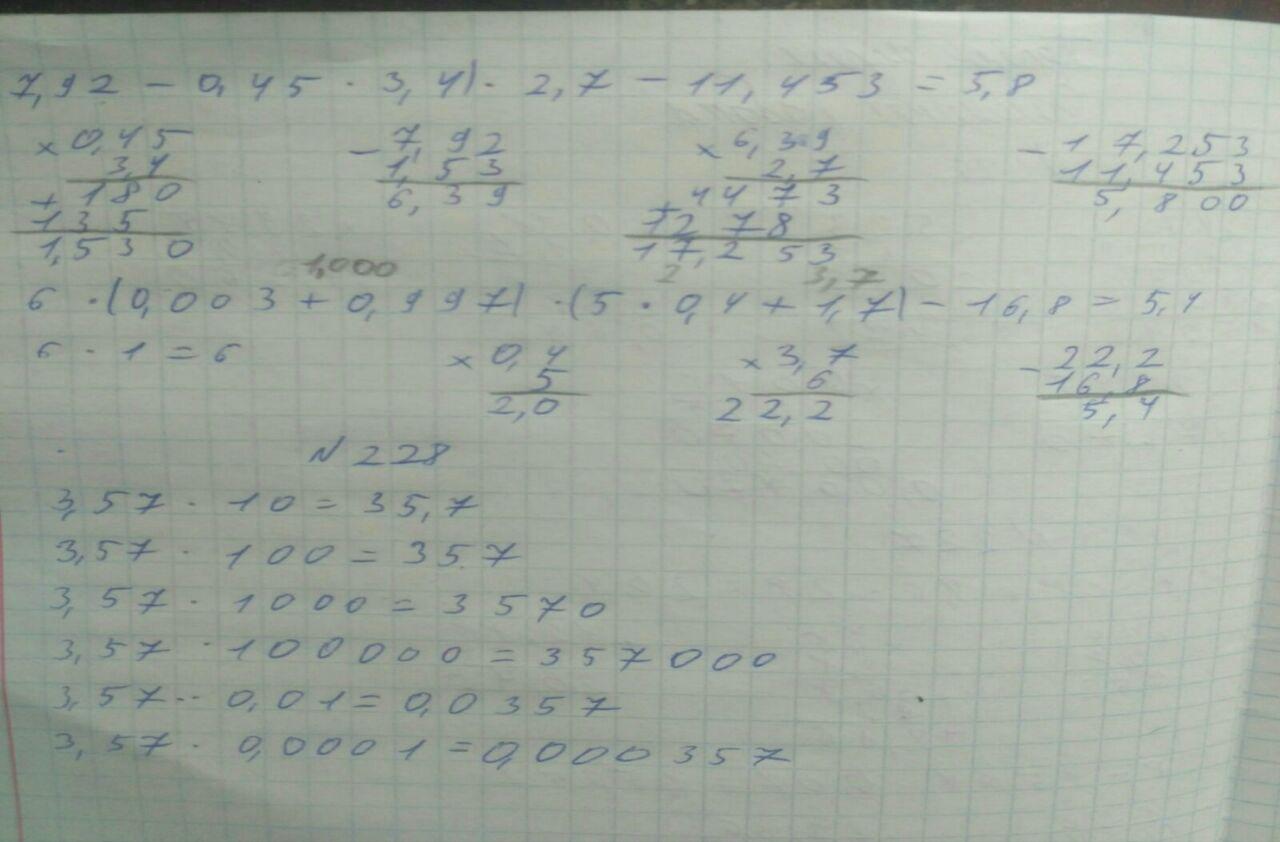 7,92 - 0,45 · 3,4) · 2,7 - 11,453 = 5,8
× 0,45 - 7,92 × 6,39 - 17,253
3,4 1,53 2,7 11,453
+ 180 6,39 + 4473 5,800
135 1278
1,530 17,253
1,000 2 3,7
6 · (0,003 + 0,997) · (5 · 0,4 + 1,7) - 16,8 = 5,4
6 · 1 = 6 × 0,4 × 3,7 - 22,2
5 6 16,8
2,0 22,2 5,4
N 228
3,57 · 10 = 35,7
3,57 · 100 = 357
3,57 · 1000 = 3570
3,57 · 100000 = 357000
3,57 · 0,01 = 0,0357
3,57 · 0,0001 = 0,000357